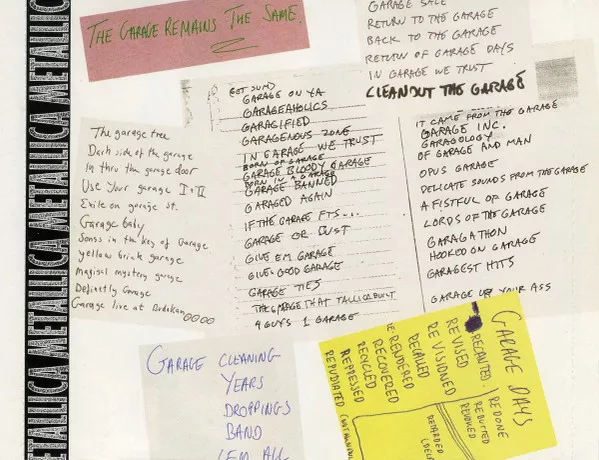 METALLICA METALLICA METALLICA METALLICA
THE GARAGE REMAINS THE SAME.
GARAGE SALE
RETURN TO THE GARAGE
BACK TO THE GARAGE
RETURN OF GARAGE DAYS
IN GARAGE WE TRUST
CLEAN OUT THE GARAGE
The garage tree
Dark side of the garage
In thru the garage door
Use Your garage I + II
Exile on garage st.
Garage baby
Songs in the key of Garage
yellow brick garage
Magical mystery garage
Definetly Garage
Garage live at Budokan
(GET SUM)
GARAGE ON YA
GARAGEAHOLICS
GARAGIFIED
GARAGENOUS ZONE
IN GARAGE WE TRUST
BORN OF GARAGE
GARAGE BLOODY GARAGE
BORN IN A GARAGE
GARAGE BANNED
GARAGED AGAIN
IF THE GARAGE FTS...
GARAGE OR BUST
GIVE EM GARAGE
GIVE GOOD GARAGE
GARAGE TIES
THE GARAGE THAT TALLICA BUILT
4 GUYS 1 GARAGE
IT CAME FROM THE GARAGE
GARAGE INC.
GARAGOLOGY
OF GARAGE AND MAN
OPUS GARAGE
DELICATE SOUNDS FROM THE GARAGE
A FISTFUL OF GARAGE
LORDS OF THE GARAGE
GARAGATHON
HOOKED ON GARAGE
GARAGEST HITS
GARAGE UP YOUR ASS
GARAGE CLEANING
YEARS
DROPPINGS
BAND
'EM ALL
GARAGE DAYS
REDONE
REBUTTED
REVOKED
RECANTED
REVISED
RE VISIONED
RECALLED
RE: RENDERED
RECOVERED
RECYCLED
REPRESSED
REPUDIATED
RETARDED